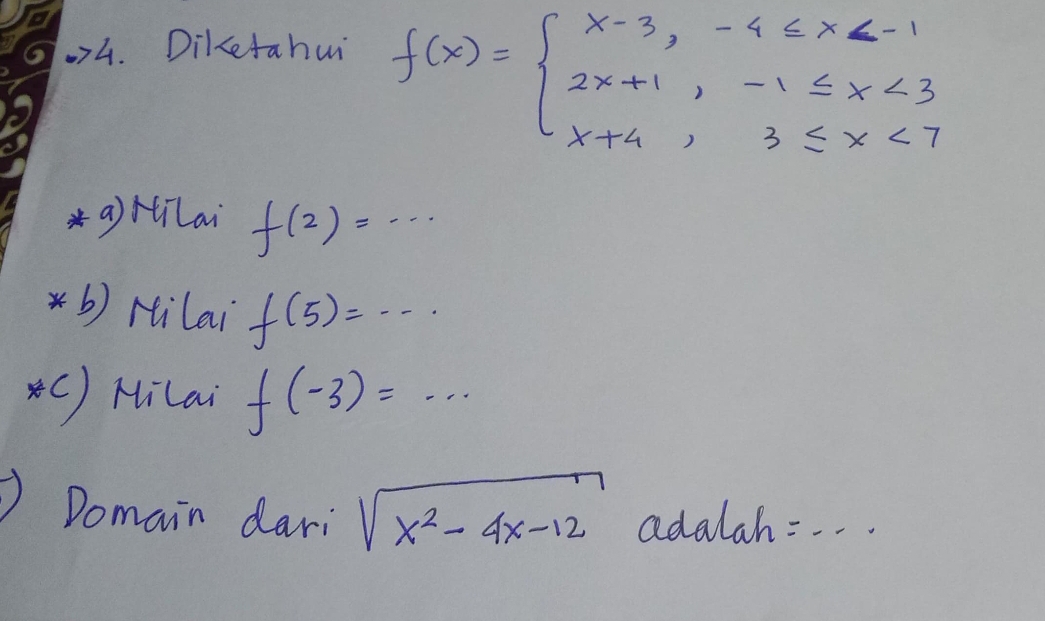 ->4. Diketahui f(x) = { x-3, -4 ≤ x < -1
2x+1, -1 ≤ x < 3
x+4, 3 ≤ x < 7
* a) Nilai f(2) = ...
* b) Nilai f(5) = ...
* c) Nilai f(-3) = ...
) Domain dari √x²-4x-12 adalah = ...